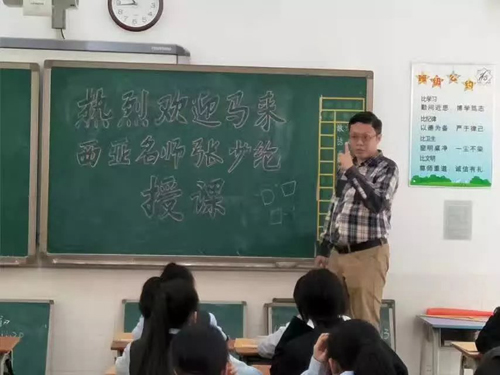 热烈欢迎马来
西亚名师张少纶
授课
比学习
勤问近思 博学笃志
比纪律
以德为备 严于律己
比卫生
窗明桌净 一尘不染
比文明
尊师重道 诚信有礼